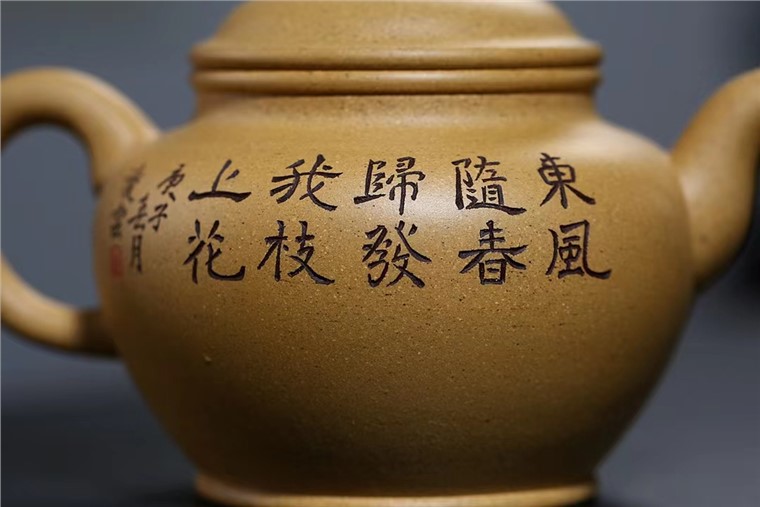 東風
隨春
歸發
我枝
上花
庚子
月